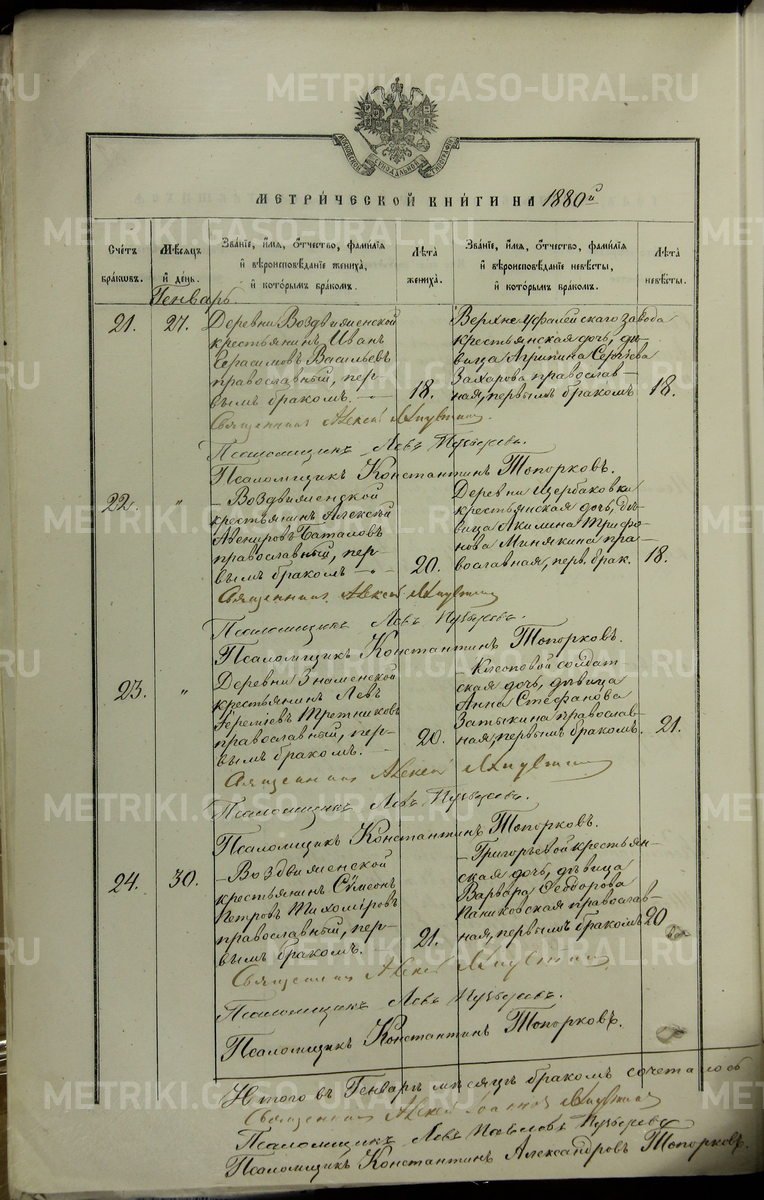 METRIKI.GASO-URAL.RU
МОСКОВСКОЙ СѴНОДАЛЬНОЙ ТИПОГРАФІИ
МЕТРИЧЕСКОЙ КНИГИ НА 1880й
Счетъ браковъ.
Мѣсяцъ и день.
Званіе, имя, отчество, фамилія и вѣроисповѣданіе жениха, и которымъ бракомъ.
Лѣта жениха.
Званіе, имя, отчество, фамилія и вѣроисповѣданіе невѣсты, и которымъ бракомъ.
Лѣта невѣсты.
Генварь.
21.
27.
Деревни Воздвиженской
крестьянинъ Иванъ
Герасимовъ Васильевъ
православный, пер-
вымъ бракомъ.
18.
Верхнеуфалейскаго завода
крестьянская дочь, дѣ-
вица Агрипина Сергѣева
Захарова православ-
ная, первымъ бракомъ
18.
Священникъ Алексей
Псаломщикъ Левъ
Псаломщикъ Константинъ Топорковъ.
22.
"
– Воздвиженской
крестьянинъ Алексѣй
Баталовъ
православный, пер-
вымъ бракомъ
20.
Деревни Щербаковки
крестьянская дочь, дѣ-
вица Акилина Трифо-
нова Минякина пра-
вославная, перв. брак.
18.
Священникъ Алексей
Псаломщикъ Левъ
Псаломщикъ Константинъ Топорковъ.
23.
"
Деревни Знаменской
крестьянинъ Левъ
Іереміевъ Третниковъ
православный, пер-
вымъ бракомъ.
20.
солдат-
ская дочь, дѣвица
Анна Стефанова
Затыкина православ-
ная, первымъ бракомъ.
21.
Священникъ Алексей
Псаломщикъ Левъ
Псаломщикъ Константинъ Топорковъ.
24.
30.
– Воздвиженской
крестьянинъ Сѵмеонъ
Петровъ Тихоміровъ
православный, пер-
вымъ бракомъ.
21.
– Григорьевой крестьян-
ская дочь, дѣвица
Варвара Ѳеодорова
Пашковская православ-
ная, первымъ бракомъ
20
Священникъ Алексей
Псаломщикъ Левъ
Псаломщикъ Константинъ Топорковъ.
Итого въ Генварѣ мѣсяцѣ бракомъ сочеталось
Священникъ Алексей
Псаломщикъ Левъ Павловъ
Псаломщикъ Константинъ Александровъ Топорковъ.